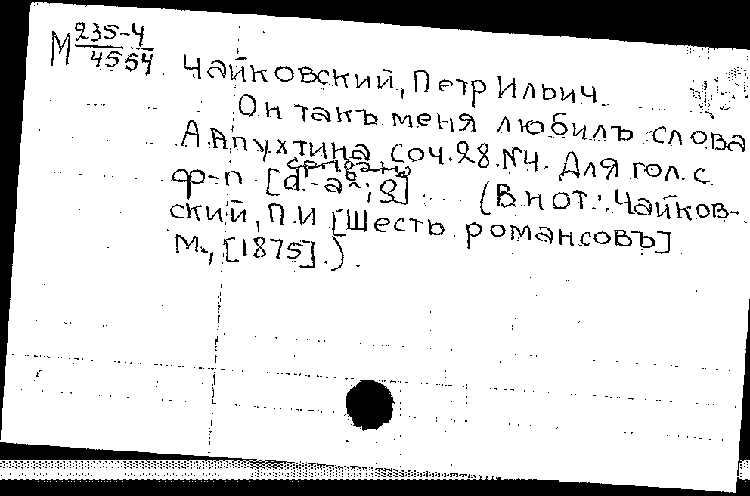 М 235-4
4554
Чайковский, Петр Ильич.
Он такъ меня любилъ слова
А. Апухтина соч. 28. №4. Для гол. с
ф-п [d
(В нот.: Чайков-
ский, П.И [Шесть романсовъ]
М., [1875].).